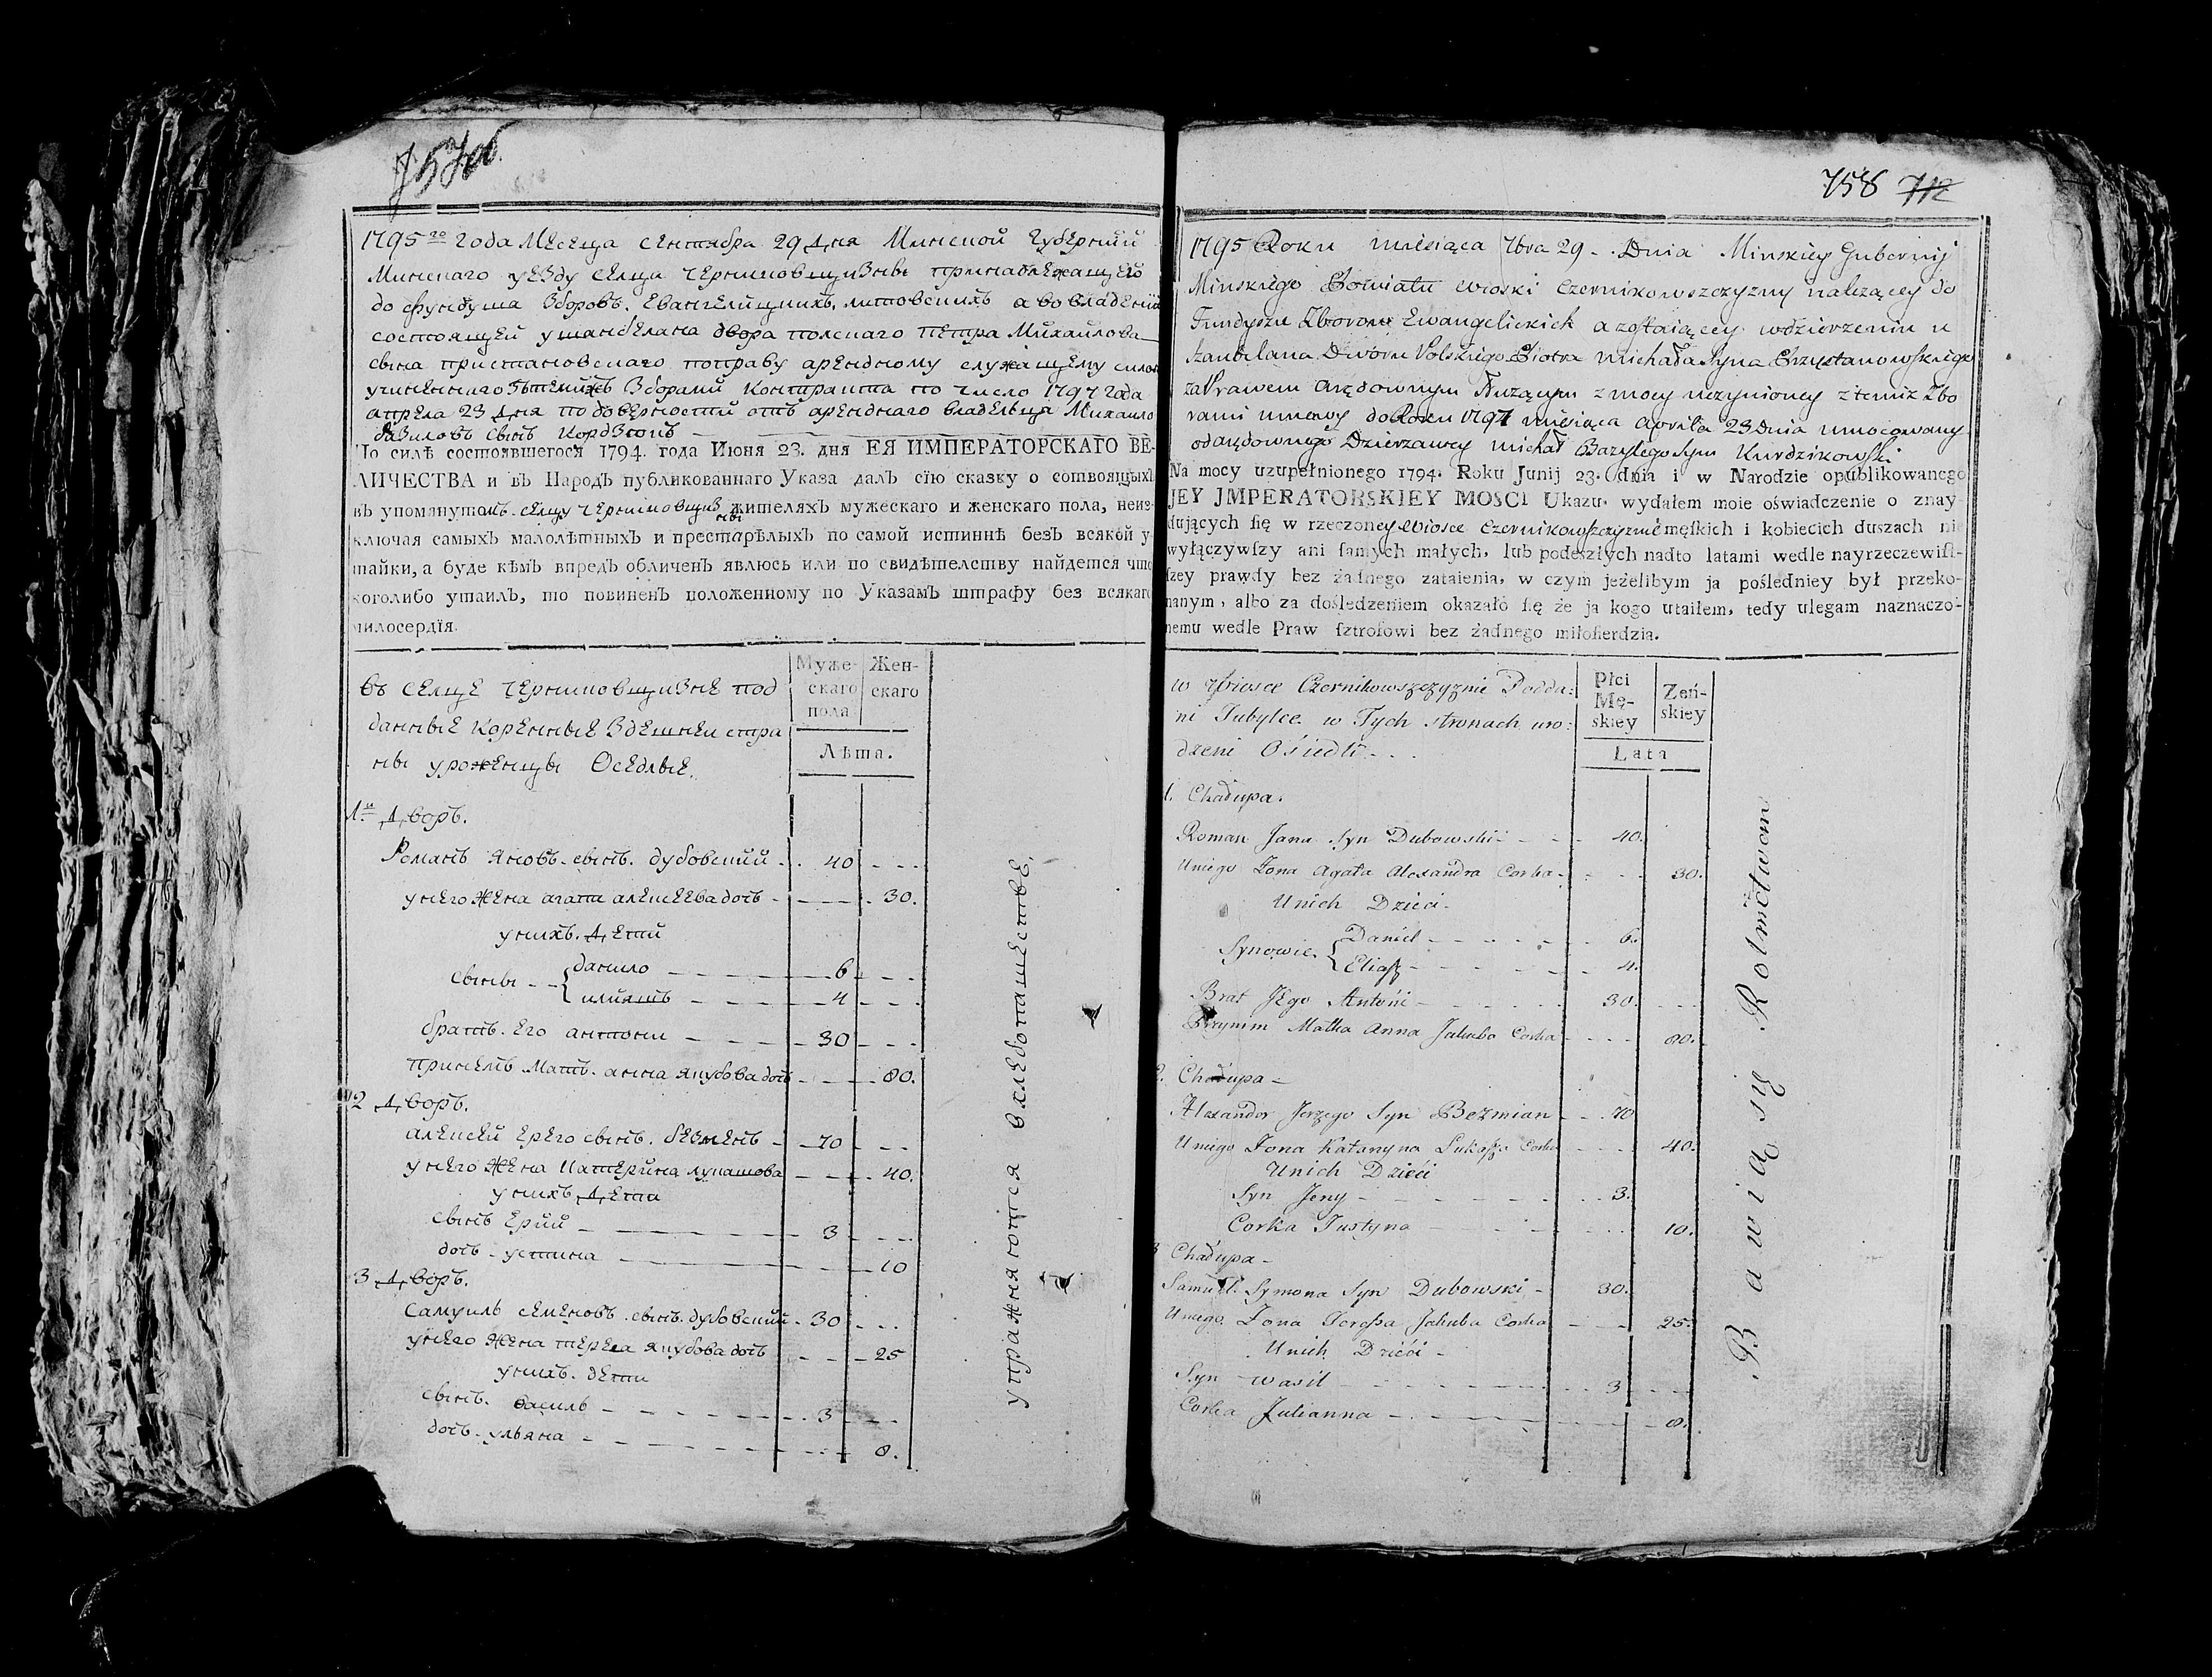 757об.
1795го года Месеца сентября 29 Дня Минской Губернии
Минскаго уезду селца черниковщизны принадлежащего
до фундуша Зборовъ. Евангелицкихъ литовскихъ а во владении
состоящей у шанбелана двора полскаго петра Михайлова
сына пристановскаго поправу арендному служащему силою
учиненнаго Зборами контракта по число 1797 года
апреля 23 дня по доверности отъ аренднаго владельца Михаило
сынъ
По силѣ состоявшегося 1794. года Июня 23. дня ЕЯ ИМПЕРАТОРСКАГО ВЕ-
ЛИЧЕСТВА и въ Народъ публикованнаго Указа далъ сїю сказку о состоящыхъ
въ упомянутомъ селцу черниковщизны жителяхъ мужескаго и женскаго пола, неиз-
ключая самыхъ малолѣтныхъ и престарѣлыхъ по самой истиннѣ безъ всякой у-
тайки, а буде кѣмъ впредъ обличенъ явлюсь или по свидѣтелству найдется что
коголибо утаилъ, то повиненъ положенному по Указамъ штрафу без всякаго
милосердїя.
въ селце черниковщизне под
данные коренные здешнеи стра
ны уроженцы Оседлые.
Муже-
скаго
пола
Жен-
скаго
Лѣта.
1и Дворъ.
Романъ яновъ сынъ. дубовский 40
у него жена агата алексеева дочь 30.
у нихъ. Дети
сыны данило 6
илияшъ 4
братъ. его антони 30
принемъ. мать. анна якубова дочь 80.
2 Дворъ.
алексей ерего сынъ. безменъ 70
у него жена катерина лукашова 40.
у нихъ Дети
сынъ ерий 3
дочь устина 10
3 Дворъ.
самуиль семеновъ сынъ. дубовский 30
у него жена тереса якубова дочь 25
у нихъ. дети
сынъ. василь 3
дочь ульяна 8.
упражняются в хлебопашестве.
758 712
1795 Roku miesiąca 7bra 29 Dnia Minskiey Gubernij
Minskiego Powiatu wioski Czernikowszczyzny nalezącey do
Fundyszu Zborow Ewangelickich a zostaiącey w dzierzeniu u
szambelana Dworu Polskiego Piotra Michała syna Chrzystanowskiego
za Prawem arędownym służącym z mocy uczynioney z temiz Zbo
rami umowy do Roku 1797 miesiąca Aprila 23 Dnia umocowany
od arędownego Dzierzawcy Michał Bazylego syn Kurdzikowski
Na mocy uzupełnionego 1794. Roku Junij 23. dnia i w Narodzie opublikowanego
JEY JMPERATORSKIEY MOSCI Ukazu. wydałem moie oświadczenie o znay-
duiących się w rzeczoney wiosce Czernikowszczyznie męskich i kobiecich duszach nie
wyłączywszy ani samych małych, lub podeszłych nadto latami wedle nayrzeczewist-
szey prawdy bez żadnego zataienia, w czym jeżelibym ja poślednieу był przeko-
nanym, albo za dośledzeniem okazało się że ja kogo utaiłem, tedy ulegam naznaczo-
nemu wedle Praw sztrofowi bez żadnego miłosierdzia.
w Wiosce Czernikowszczyznie Podda:
ni Tubylce w Tych stronach uro:
dzeni Osiedli
Płci
Mę-
skiey
Zeń-
skiey
Lata
1. Chałupa.
Roman Jana Syn Dubowski 40.
Uniego Zona Agata Alexandra Corka 30.
Unich Dzieci
Synowie. Daniel 6.
Eliasz 4.
Brat Jego Antoni 30.
Przynim Matka Anna Jakuba Corka 80.
2. Chałupa
Alexander Jerzego Syn Bezmian 70
Uniego Zona Katarzyna Lukasza Corka 40.
Unich Dzieci
Syn Jerzy 3.
Corka Justyna 10.
3 Chałupa
Samuel Symona Syn Dubowski 30.
Uniego Zona Teressa Jakuba Corka 25.
Unich Dzieci
Syn Wasil 3
Corka Julianna 8.
Bawią się Rolnictwem